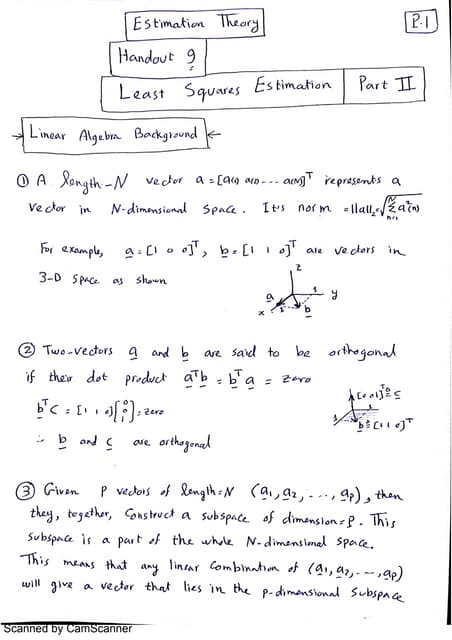 Estimation Theory
P.1
Handout 9
Least Squares Estimation Part II
Linear Algebra Background
① A length-N vector a = [a(1) a(2) --- a(N)]ᵀ represents a
vector in N-dimensional space. It's norm = ||a||₂ = √(Σₙ₌₁ᴺ a²(n))
For example, a = [1 0 0]ᵀ, b = [1 1 0]ᵀ are vectors in
3-D space as shown
z
a
1
y
x
1
b
② Two-vectors a and b are said to be orthogonal
if their dot product aᵀb = bᵀa = zero
bᵀc = [1 1 0][0 0 1] = zero
[0 0 1]ᵀ = c
∴ b and c are orthogonal
b = [1 1 0]ᵀ
③ Given P vectors of length=N (a₁, a₂, ---, aₚ), then
they, together, construct a subspace of dimension=P. This
subspace is a part of the whole N-dimensional space.
This means that any linear combination of (a₁, a₂, --, aₚ)
will give a vector that lies in the p-dimensional subspace
Scanned by CamScanner